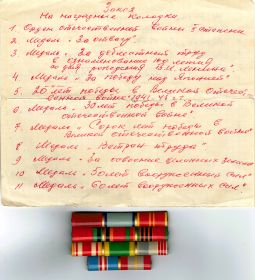 Заказ
На наградные колодки.
1. Орден отечественной войны I степени
2. Медаль "За отвагу"
3. Медаль "За доблестный труд
в ознаменование 100 летия
со дня рождения В.И. Ленина"
4. Медаль "За победу над Японией"
5. 20 лет победы в Великой Отечест-
венной войне 1941-45 г.г.
6. Медаль "30 лет победы в Великой
отечественной войне"
7. Медаль "Сорок лет победы в
Великой отечественной войне"
8. Медаль "Ветеран труда"
9 Медаль "За освоение целинных земель
10 Медаль "50 лет вооруженных сил"
11 Медаль "60 лет вооруженных сил"